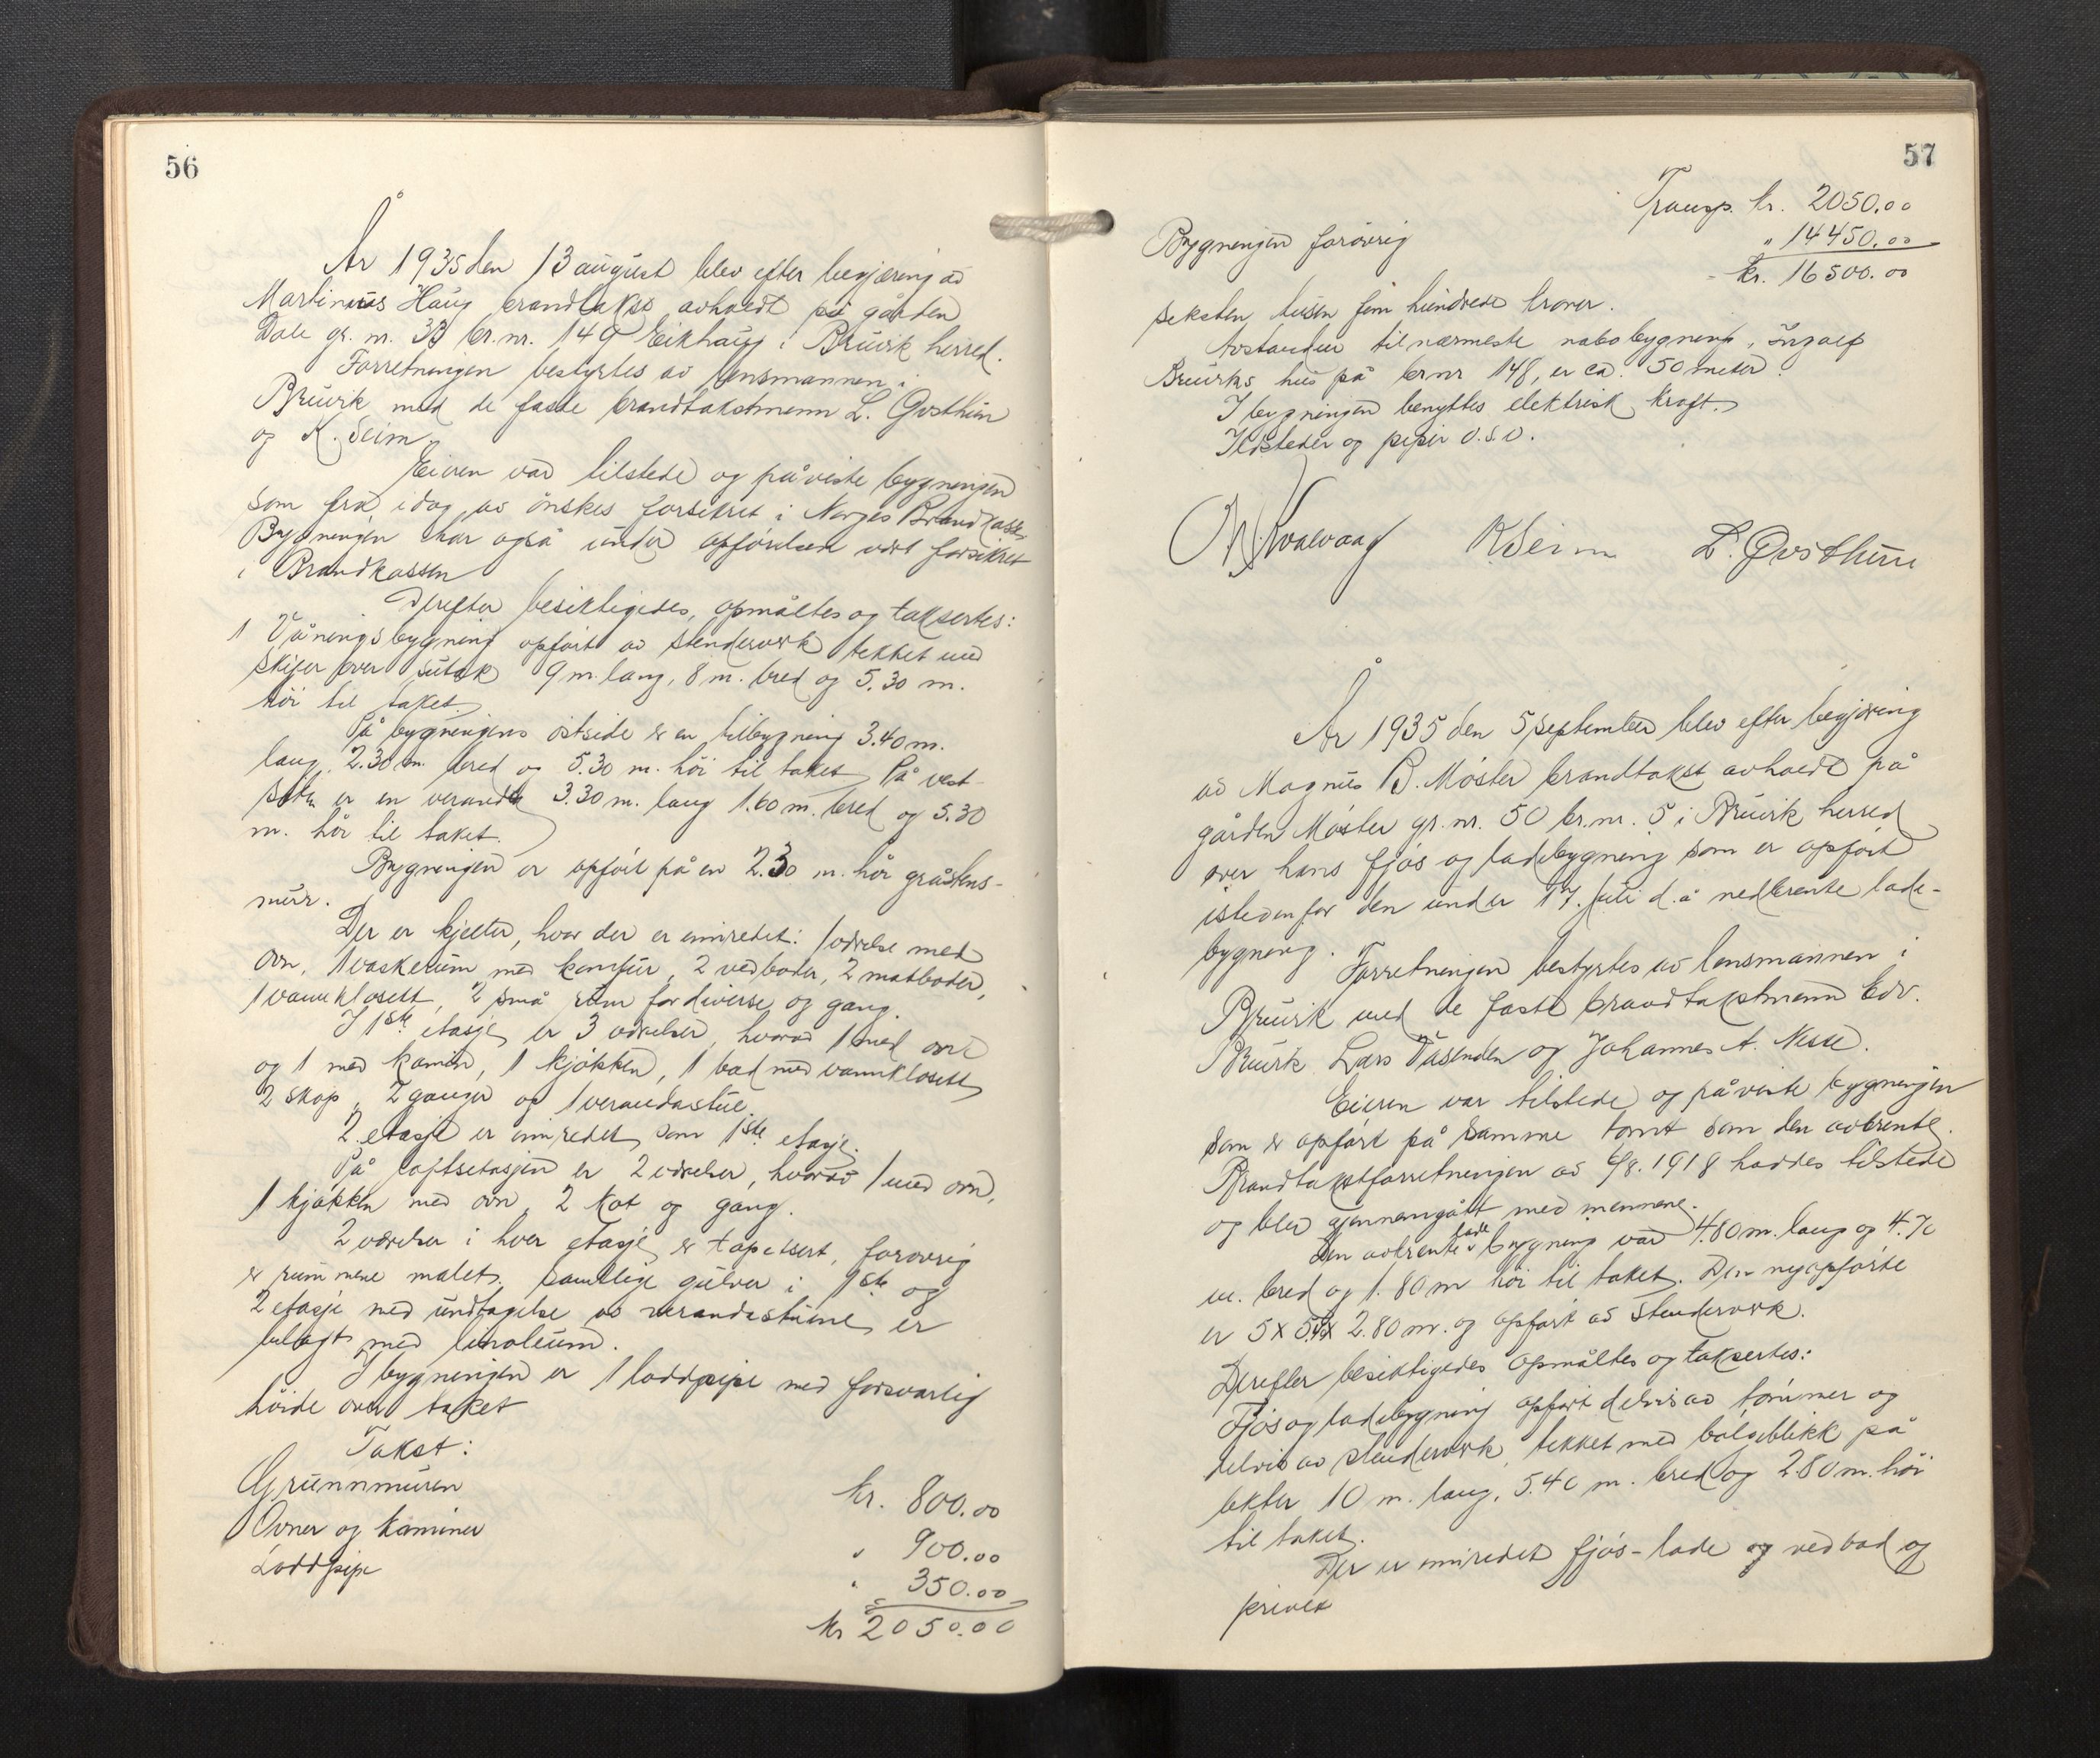 56
År 1935 den 13 august blev efter begjæring av
Martinus Haug brandtakst avholdt på gården
Dale gr. nr. 33 br. nr. 149 Eikhaug i Bruvik herred.
Forretningen bestyrtes av lensmannen i
Bruvik med de faste brandtakstmenn L. Øvsthun
og K. Seim.
Eieren var tilstede og påviste bygningen
som fra idag av ønskes forsikret i Norges Brandkasse.
Bygningen har også under opførelsen vært forsikret
i Brandkassen
Derefter besiktigedes, opmåltes og taksertes:
1 Våningsbygning opført av stenderverk tekket med
skifer over sutak 9 m. lang, 8 m. bred og 5.30 m.
høi til taket.
På bygningens østside er en tilbygning 3.40 m.
lang, 2.30 m. bred og 5.30 m. høi til taket. På vest-
siden er en veranda 3.30 m. lang 1.60 m. bred og 5.30
m. høi til taket.
Bygningen er opført på en 2.30 m. høi gråstens-
mur.
Der er kjeller, hvor der er innredet: 1 værelse med
ovn, 1 vaskerum med komfur, 2 vedboder, 2 matboder,
1 vannklosett, 2 små rum for diverse og gang.
I 1ste etasje er 3 værelser, hvorav 1 med ovn
og 1 med kamin, 1 kjøkken, 1 bad med vannklosett
2 skap, 2 ganger og 1 verandastue.
2 etasje er innredet som 1ste etasje.
På loftsetasjen er 2 værelser, hvorav 1 med ovn,
1 kjøkken med ovn, 2 kot og gang.
2 værelser i hver etasje er tapetsert, forøvrig
er rummene malet. Samtlige gulver i 1ste og
2 etasje med undtagelse av verandastuene er
belagt med linoleum.
I bygningen er 1 loddpipe med forsvarlig
høide over taket
Takst:
Grunnmuren kr. 800.00
Ovner og kaminer " 900.00
Loddpipe " 350.00
kr 2050.00
57
Transp. kr. 2050.00
Bygningen forøvrig " 14450.00
kr. 16500.00
seksten tusen fem hundrede kroner.
Avstanden til nærmeste nabobygning, Ingolf
Bruviks hus på br nr 148, er ca. 50 meter.
I bygningen benyttes elektrisk kraft.
Ildsteder og piper o.s.v.
Kvalvaag K Seim L. Øvsthun
År 1935 den 5 september blev efter begjæring
av Magnus B. Møster brandtakst avholdt på
gården Møster gr. nr. 50 br. nr. 5 i Bruvik herred
over hans fjøs og ladebygning som er opført
istedenfor den under 17. juli d. å nedbrente lade-
bygning. Forretningen bestyrtes av lensmannen i
Bruvik med de faste brandtakstmenn Edv.
Bruvik Lars Vasenden og Johannes A. Nesse.
Eieren var tilstede og påviste bygningen
som er opført på samme tomt som den avbrente.
Brandtakstforretningen av 6/8. 1918 haddes tilstede
og blev gjennemgått med mennene.
Den avbrente lade bygning var 4.80 m. lang og 4.70
m. bred og 1.80 m høi til taket. Den nyopførte
er 5 x 5.40 x 2.80 m. og opført av stenderverk.
Derefter besiktigedes opmåltes og taksertes:
Fjøs og ladebygning opført delvis av tømmer og
delvis av stenderverk, tekket med bølgeblikk på
lekter 10 m. lang, 5.40 m. bred og 2.80 m. høi
til taket.
Der er innredet fjøs - lade og vedbod og
privet